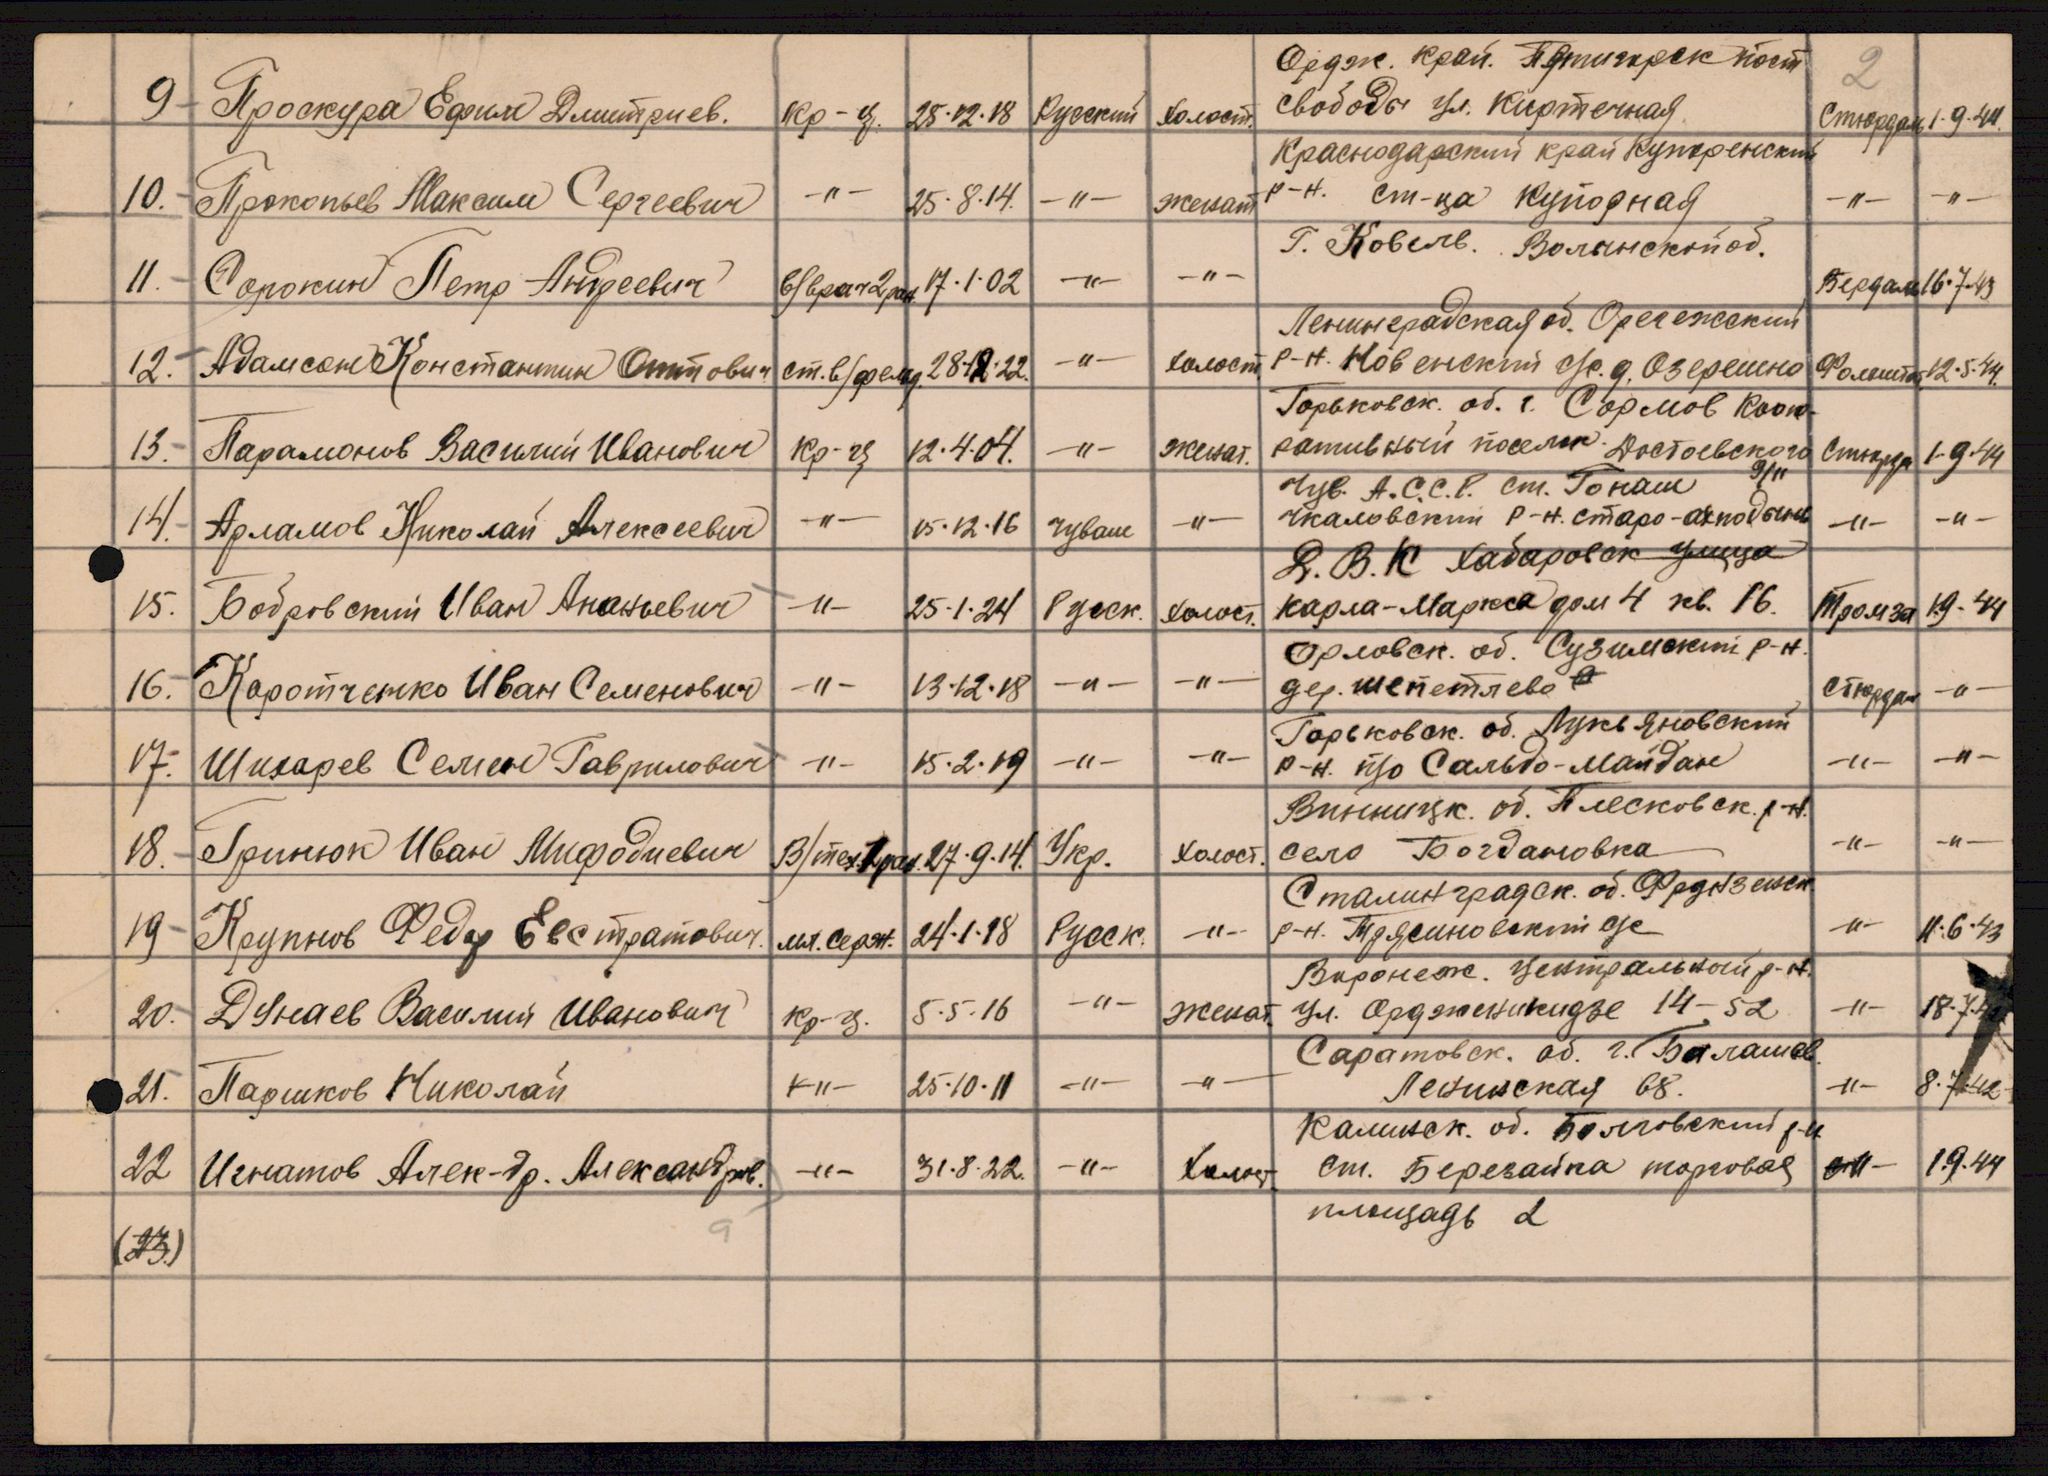 2
Ордж. край. Пятигорск пост
9 Проскура Ефим Дмитриев. Кр-ц. 25.12.18 Русский Холост. свободы ул. Кирпечная Стюрдаль 1.9.44.
Краснодарский край
10. Прокопьев Максим Сергеевич -"- 25.8.14. -"- женат р-н. ст-ца -"- -"-
Г. Ковель. Волынской об.
11. Сорокин Петр Андреевич в/врач 2 ран. 17.1.02 -"- -"- Бердаль 16.7.43
Ленинградская об. Оредежский
12. Адамсон Константин Оттович ст. в/фельд 22. -"- холост р-н. Новенский с/с. д. Озерешно 12.5.44.
Горьковск. об. г. Сормов Коопе-
13. Парамонов Василий Иванович Кр-ц 12.4.04. -"- женат. ративный поселок Достоевского Стюрда 1.9.44
Чув. А.С.С.Р. ст.
14. Арламов Николай Алексеевич -"- 15.12.16 чуваш -"- Чкаловский р-н. старо- -"- -"-
Д.В.К Хабаровск улица
15. Бобровский Иван Ананьевич -"- 25.1.24 Русск. Холост. Карла-Маркса дом 4 кв. 16. Тромза 1.9.44
Орловск. об. Суземский р-н.
16. Коротченко Иван Семенович -"- 13.12.18 -"- -"- дер. шепетлево Стюрдаль -"-
Горьковск. об. Лукьяновский
17. Шихарев Семен Гаврилович -"- 15.2.19 -"- -"- р-н. п/о Сальдо-Майдан -"- -"-
Винницк. об. Плесковск. р-н.
18. Гринюк Иван Мифодиевич В/тех. 27.9.14. Укр. Холост. село Богдановка -"- -"-
Сталинградск. об. Фрунзенск
19 Крупнов Федор Евстратович. мл. серж. 24.1.18 Русск. -"- р-н. Трясиновский с/с -"- 11.6.43
Воронеж. Центральный р-н.
20. Дунаев Василий Иванович Кр-ц. 5.5.16 -"- женат. ул. Орджоникидзе 14-52 -"- 18.7.
Саратовск. об. г. Балашов.
21. Паршков Николай -"- 25.10.11 -"- -"- Ленинская 68. -"- 8.7.42
Калинск. об. Бологовский р-н
22 Игнатов Алек-др. Александров. -"- 31.8.22. -"- Холост. ст. Березайка торговая -"- 1.9.44
площадь 2
(23.)
9